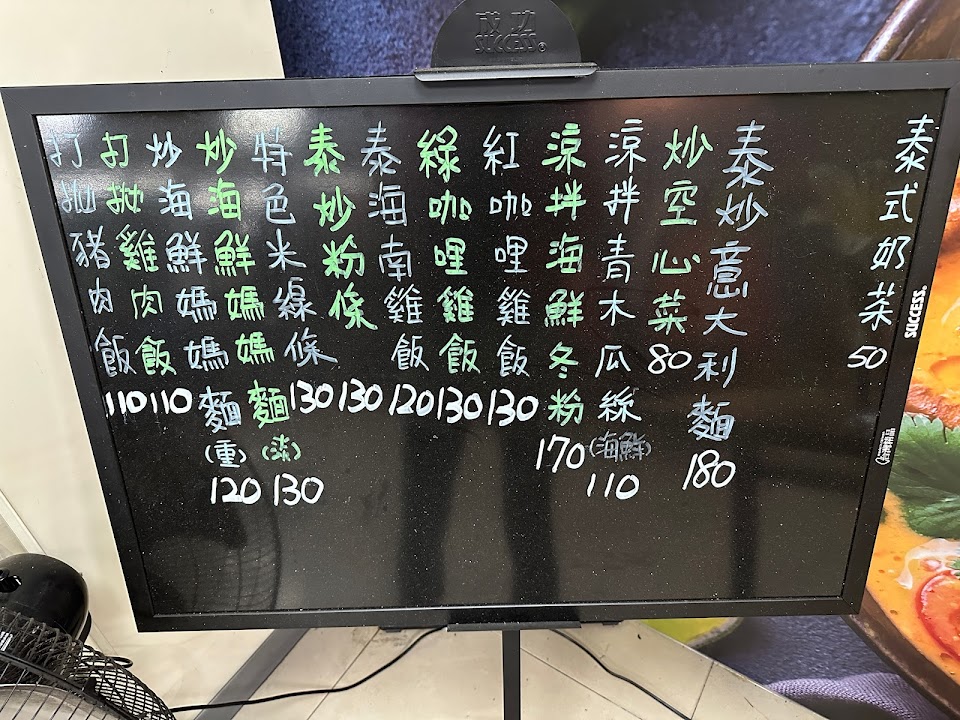 成功
SUCCESS®
泰式奶茶50
泰炒意大利麵180
炒空心菜80
涼拌青木瓜絲(海鮮)110
涼拌海鮮冬粉170
紅咖哩雞飯130
綠咖哩雞飯130
泰海南雞飯120
泰炒粉條130
特色米線條130
炒海鮮媽媽麵(淡)130
炒海鮮媽媽麵(重)120
打拋雞肉飯110
打拋豬肉飯110
SUCCESS®